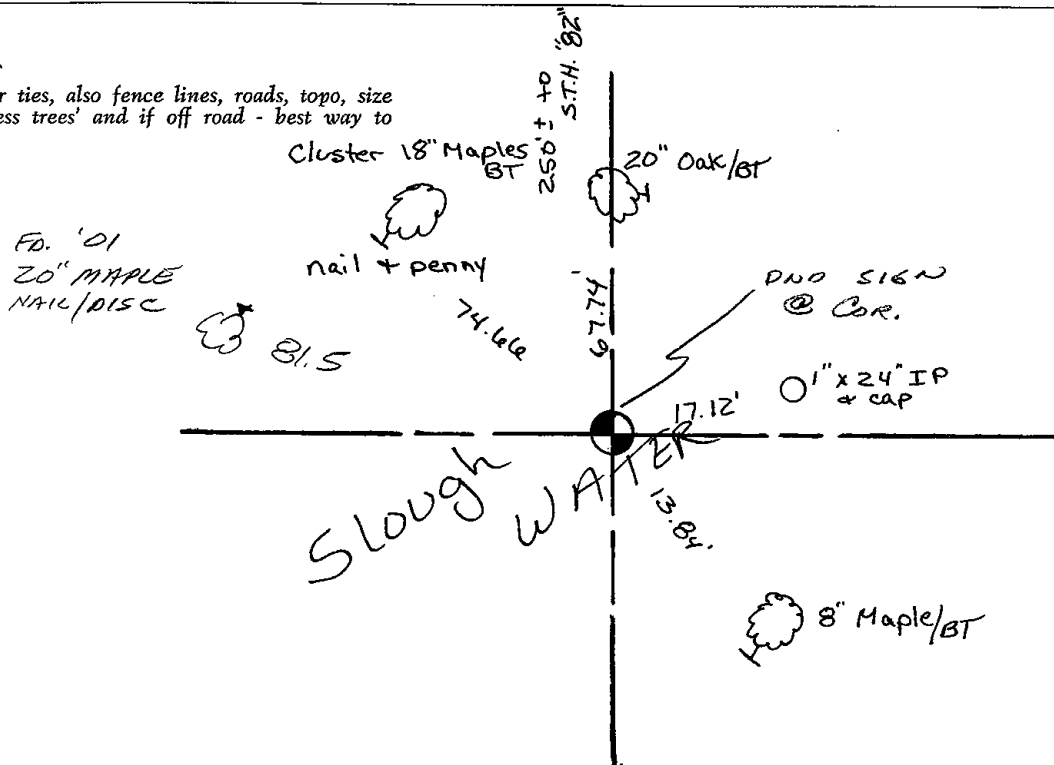 r ties, also fence lines, roads, topo, size
ess trees' and if off road - best way to
250' ± to
S.T.H. "82"
Cluster 18" Maples
BT
20" Oak/BT
FD. '01
20" MAPLE
NAIL/DISC
nail + penny
81.5
74.66
67.74'
SIGN
@ COR.
1" x 24" IP
& cap
17.12'
Slough WATER
13.84'
8" Maple/BT